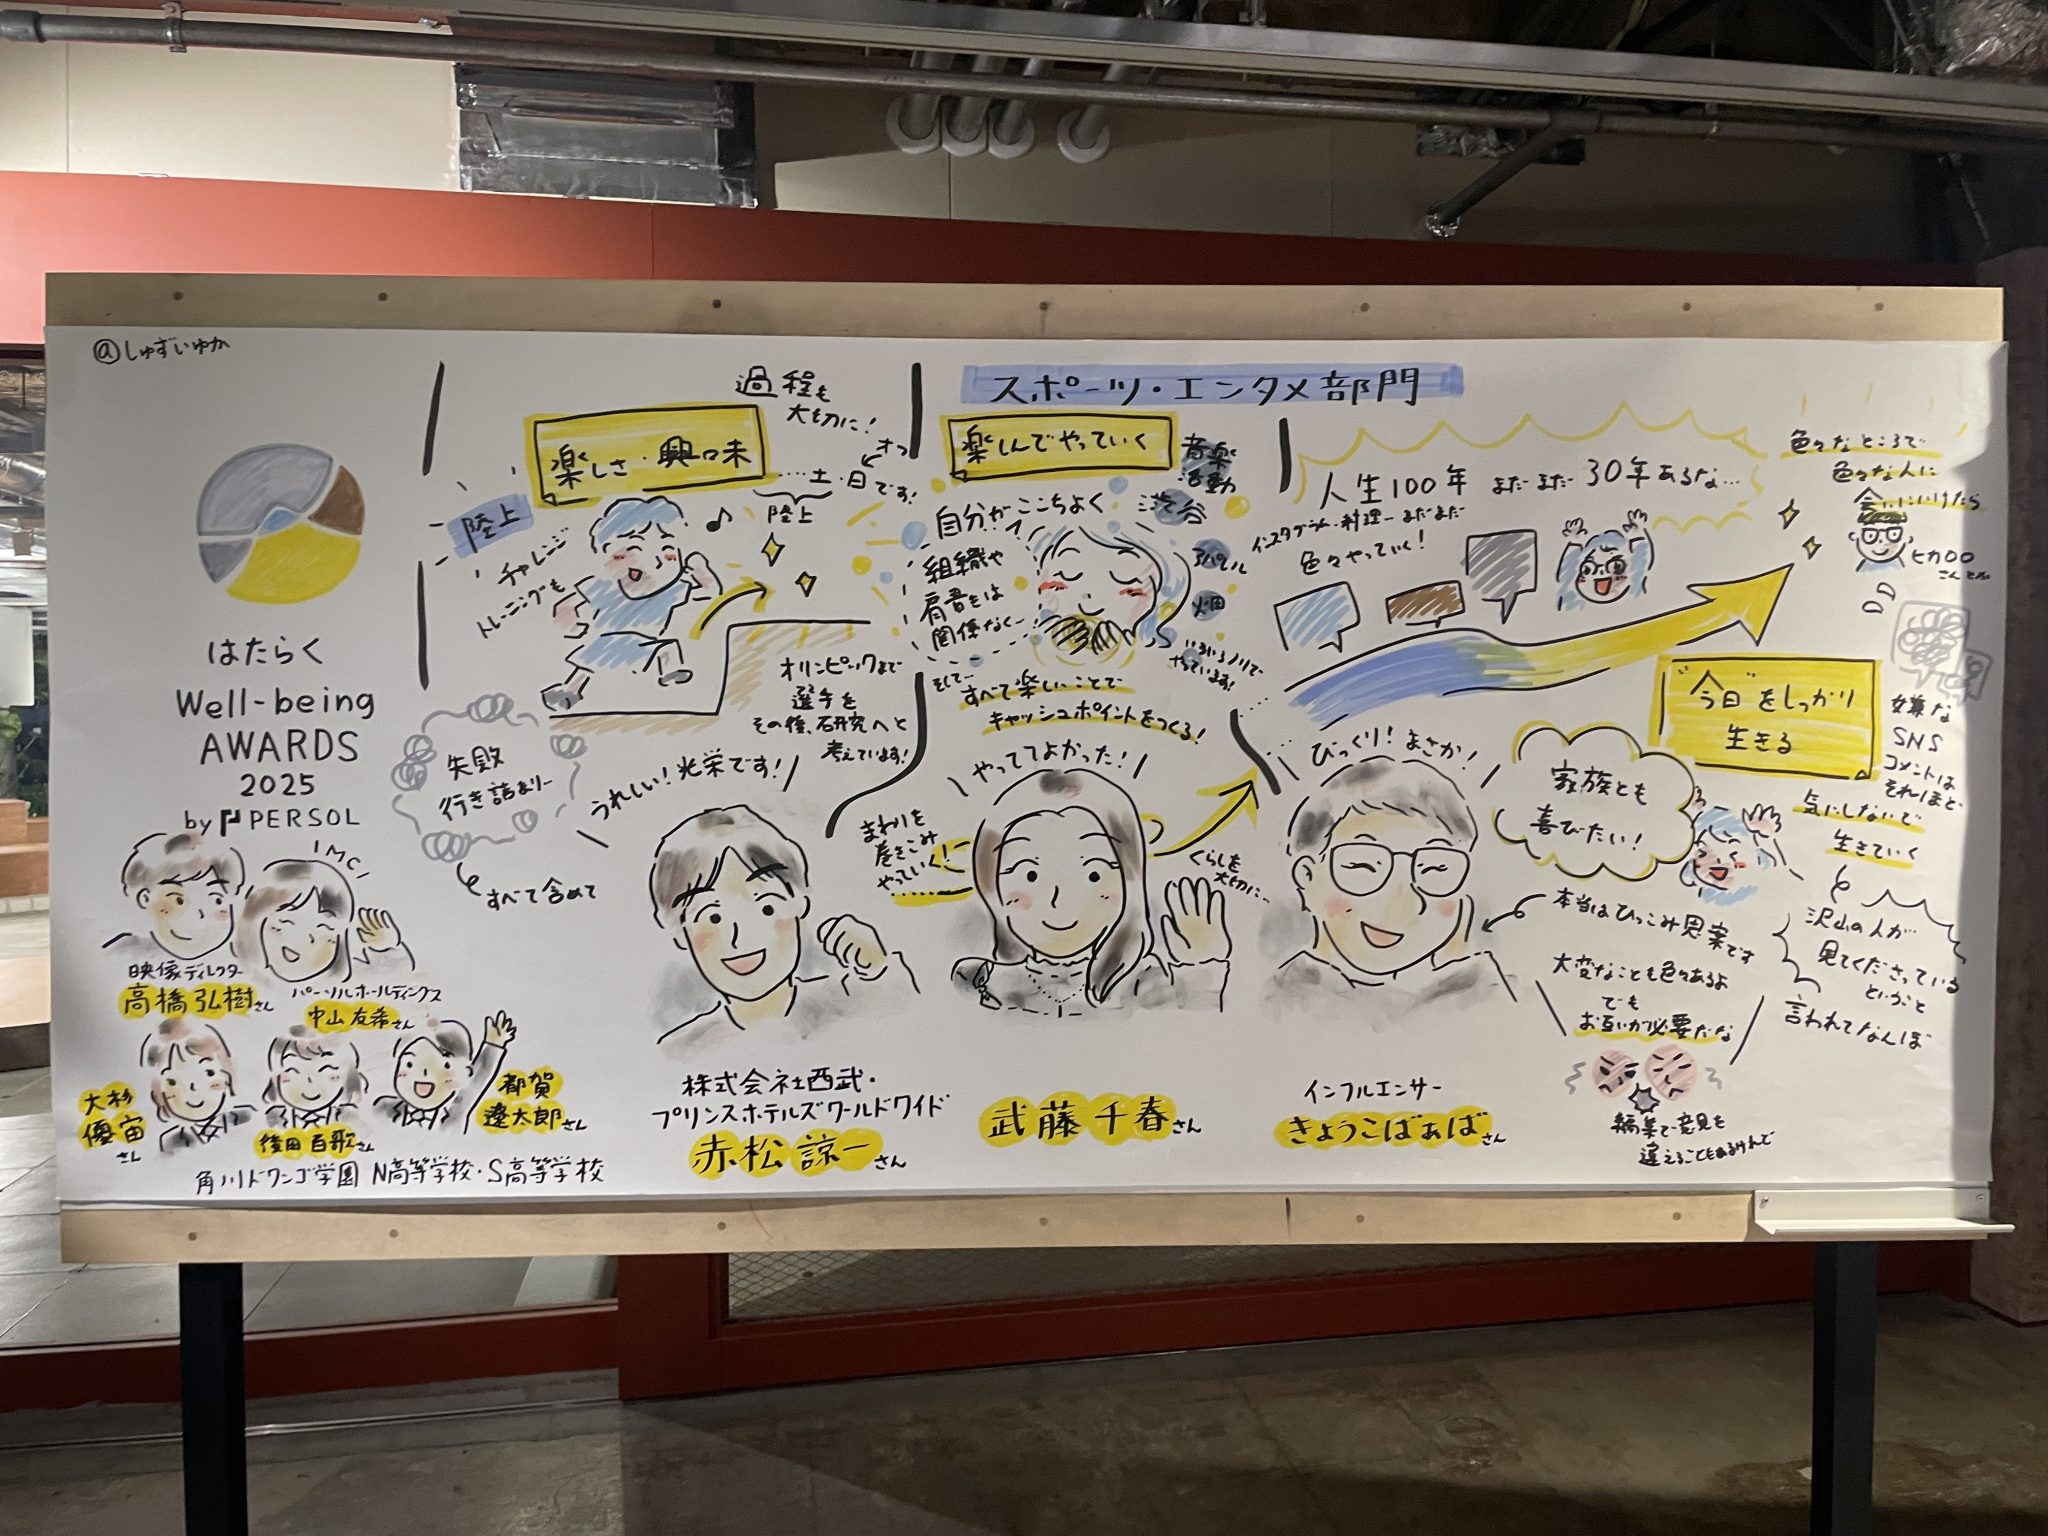 @しゅずいゆか
はたらく
Well-being
AWARDS
2025
by PERSOL
MC
映像ディレクター
高橋弘樹さん
パーソルホールディングス
中山友希さん
大杉
優宙
さん
後田百歌さん
都賀
遼太郎さん
角川ドワンゴ学園 N高等学校・S高等学校
スポーツ・エンタメ部門
過程も
大切に!
楽しさ・興味
オフ
....土・日です!
陸上
陸上
チャレンジ
トレーニングも
オリンピックまで
選手を
その後、研究へと
考えています!
失敗
行き詰まり—
すべて含めて
うれしい!光栄です!
株式会社西武・
プリンスホテルズワールドワイド
赤松諒一さん
楽しんでやっていく
音楽
活動
渋谷
アパレル
畑
いろいろノリで
やっています!
自分がここちよく
組織や
肩書もは
関係なく—
そして—
すべて楽しいことで
キャッシュポイントをつくる!
やっててよかった!
まわりを
巻きこみ
やっていく!
くらしを
大切に…
武藤千春さん
人生100年 まだまだ30年あるな…
インスタグラム・料理—まだまだ
色々やっていく!
びっくり!まさか!
家族とも
喜びたい!
本当はひっこみ思案です
大変なことも色々あるよ
でも
お互いが必要だな
編集で意見を
違えることもあるけんど
インフルエンサー
きょうこばぁばさん
色々なところで
色々な人に
会いにいけたら
ヒカロロ
さんとか
"今日"をしっかり
生きる
嫌な
SNS
コメントは
それほど
気にしないで
生きていく
沢山の人が
見てくださっている
ということ
言われてなんぼ